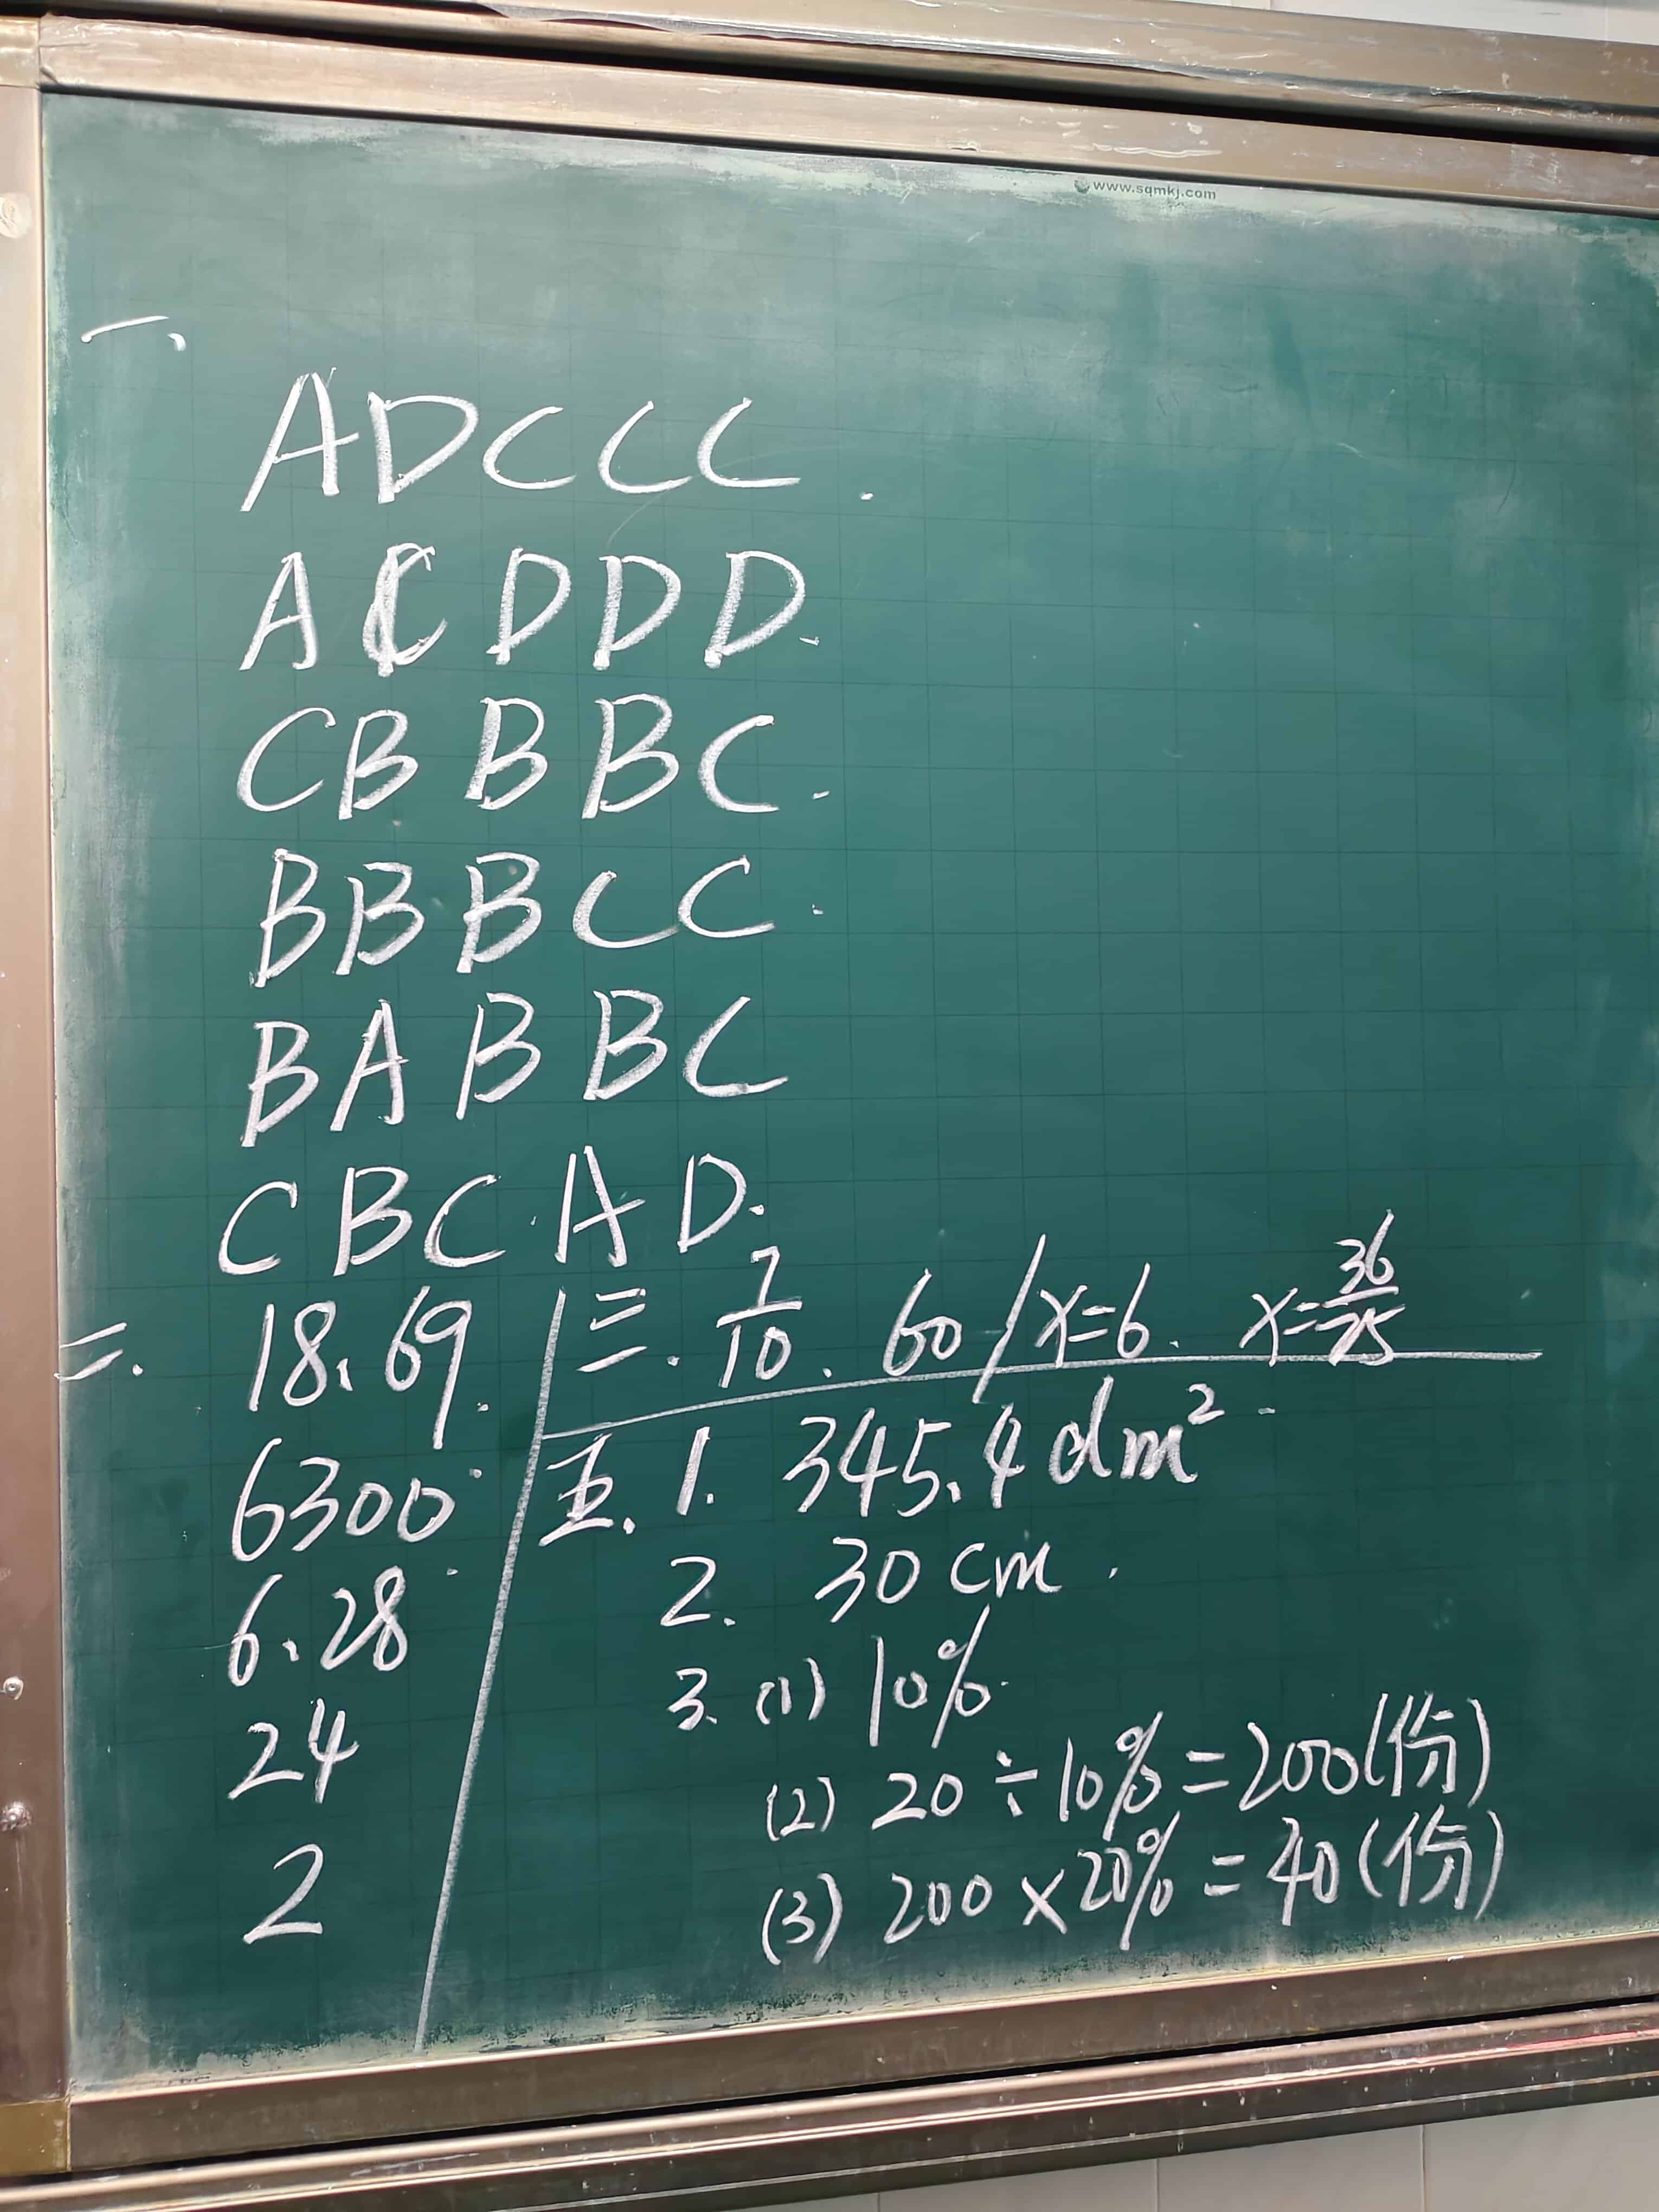 www.sqmkj.com
一、
ADCCC.
ACDDD.
CBBBC.
BBBCC.
BABBC
CBCAD.
二. 18.69.
6300.
6.28.
24
2
三. 7/10、60/x=6. x=36/25
五. 1. 345.4dm².
2. 30cm.
3. (1) 10%.
(2) 20÷10%=200(份)
(3) 200×20%=40(份)